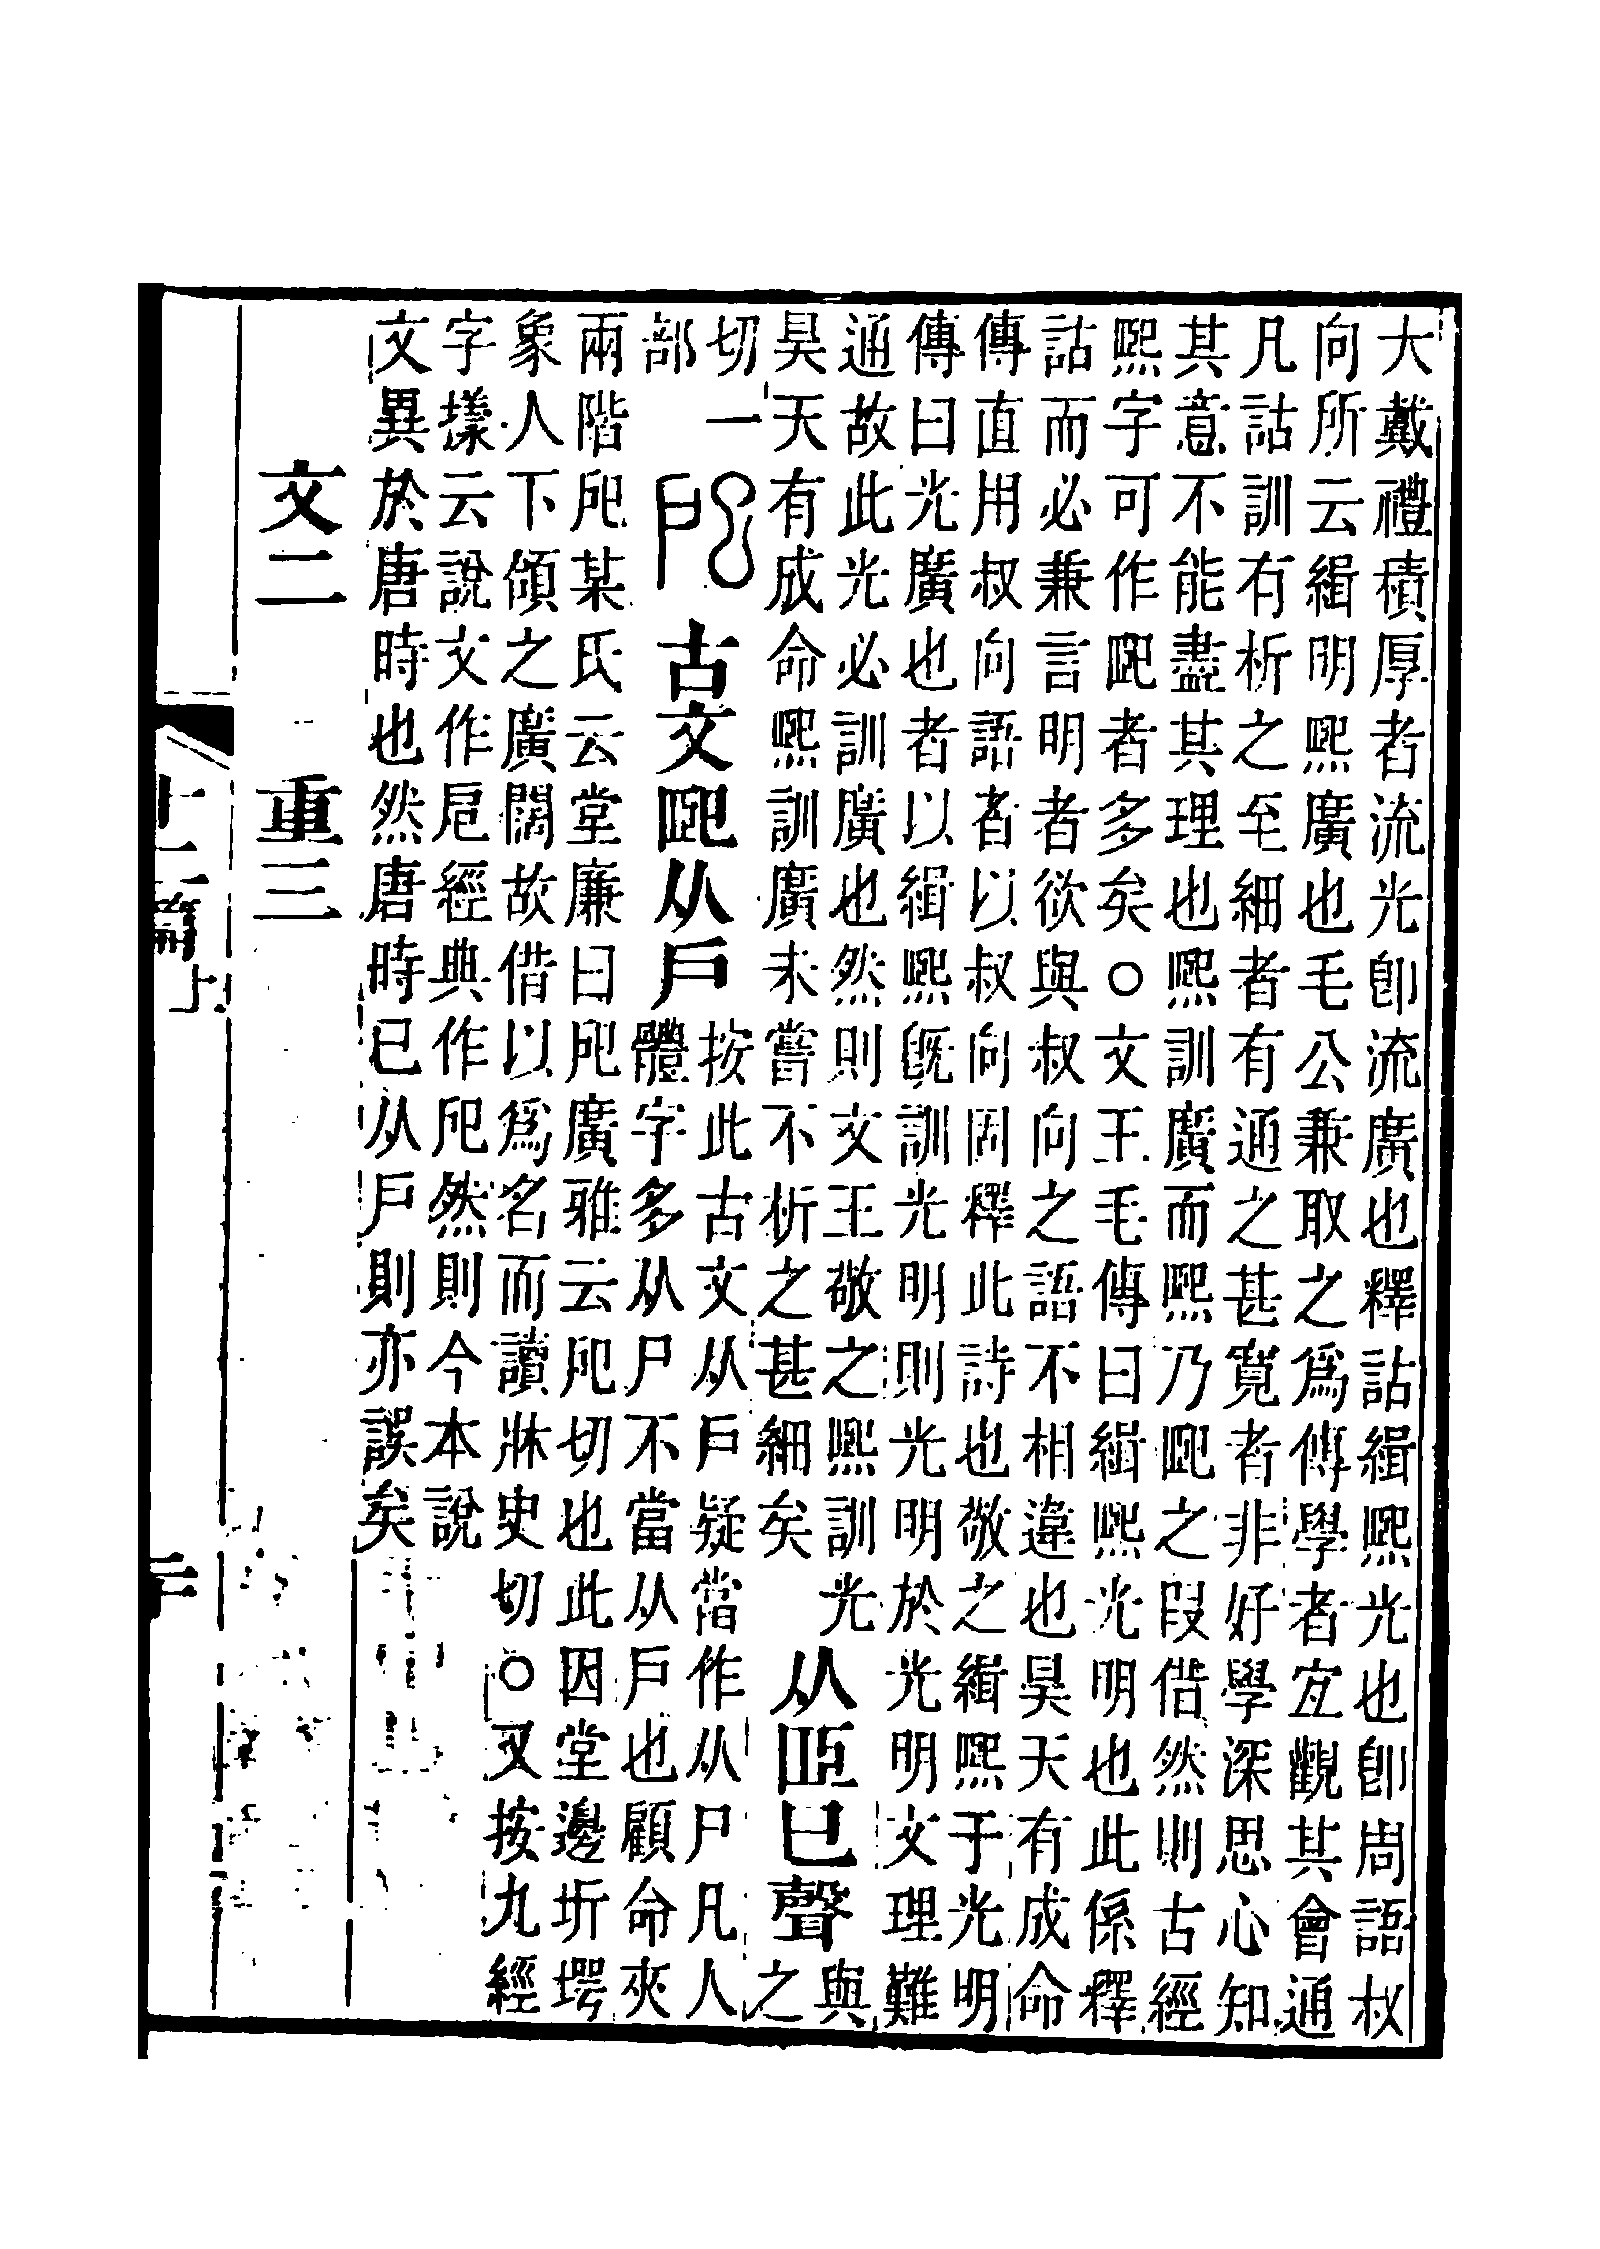 大戴禮積厚者流光卽流廣也釋詁緝熙光也卽周語叔
向所云緝明熙廣也毛公兼取之爲傳學者宐觀其會通
凡詁訓有析之至細者有通之甚寬者非好學深思心知
其意不能盡其理也熙訓廣而熙乃巸之叚借然則古經
熙字可作巸者多矣○文王毛傳曰緝熙光明也此係釋
詁而必兼言明者欲與叔向之語不相違也昊天有成命
傳直用叔向語者以叔向固釋此詩也敬之緝熙于光明
傳曰光廣也者以緝熙旣訓光明則光明於光明文理難
通故此光必訓廣也然則文王敬之熙訓光
昊天有成命熙訓廣未嘗不析之甚細矣
从𦣞巳聲
與之
切一
部
古文巸从戶
按此古文从戶疑當作从尸凡人
體字多从尸不當从戶也顧命夾
兩階戺某氏云堂廉曰戺廣雅云戺切也此因堂邊圻堮
象人下頷之廣闊故借以爲名而讀牀史切○又按九經
字樣云說文作戹經典作戺然則今本說
文異於唐時也然唐時已从戶則亦誤矣
文二 重三
十二篇上